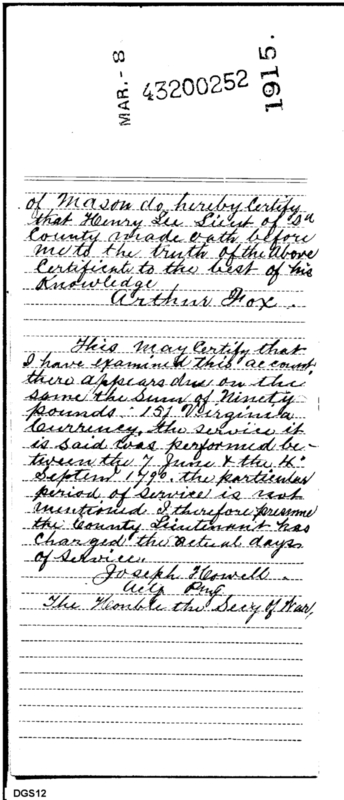 MAR.-8
43200252
1915.
of Mason do, hereby Certify
that Henry Lee Lieut of sd
County made oath before
me to the truth of the above
Certificate to the best of his
Knowledge
Arthur Fox.
This may Certify that
I have examined this account
there appears due on the
same the Sum of Ninety
pounds. 15/ Virginia
Currency, the service it
is said was performed be-
tween the 7 June & the
Septem 1790. the particular
period of service is not
mentioned I therefore presume
the County Lieutenant has
charged the actual days
of service.
Joseph Howell.
The Honble the Secy of War,
DGS12